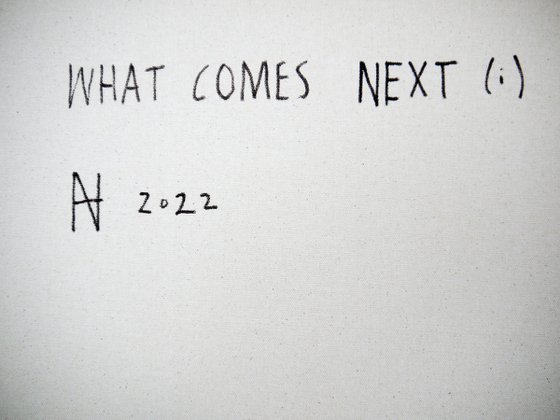 WHAT COMES NEXT (i)
₦ 2022